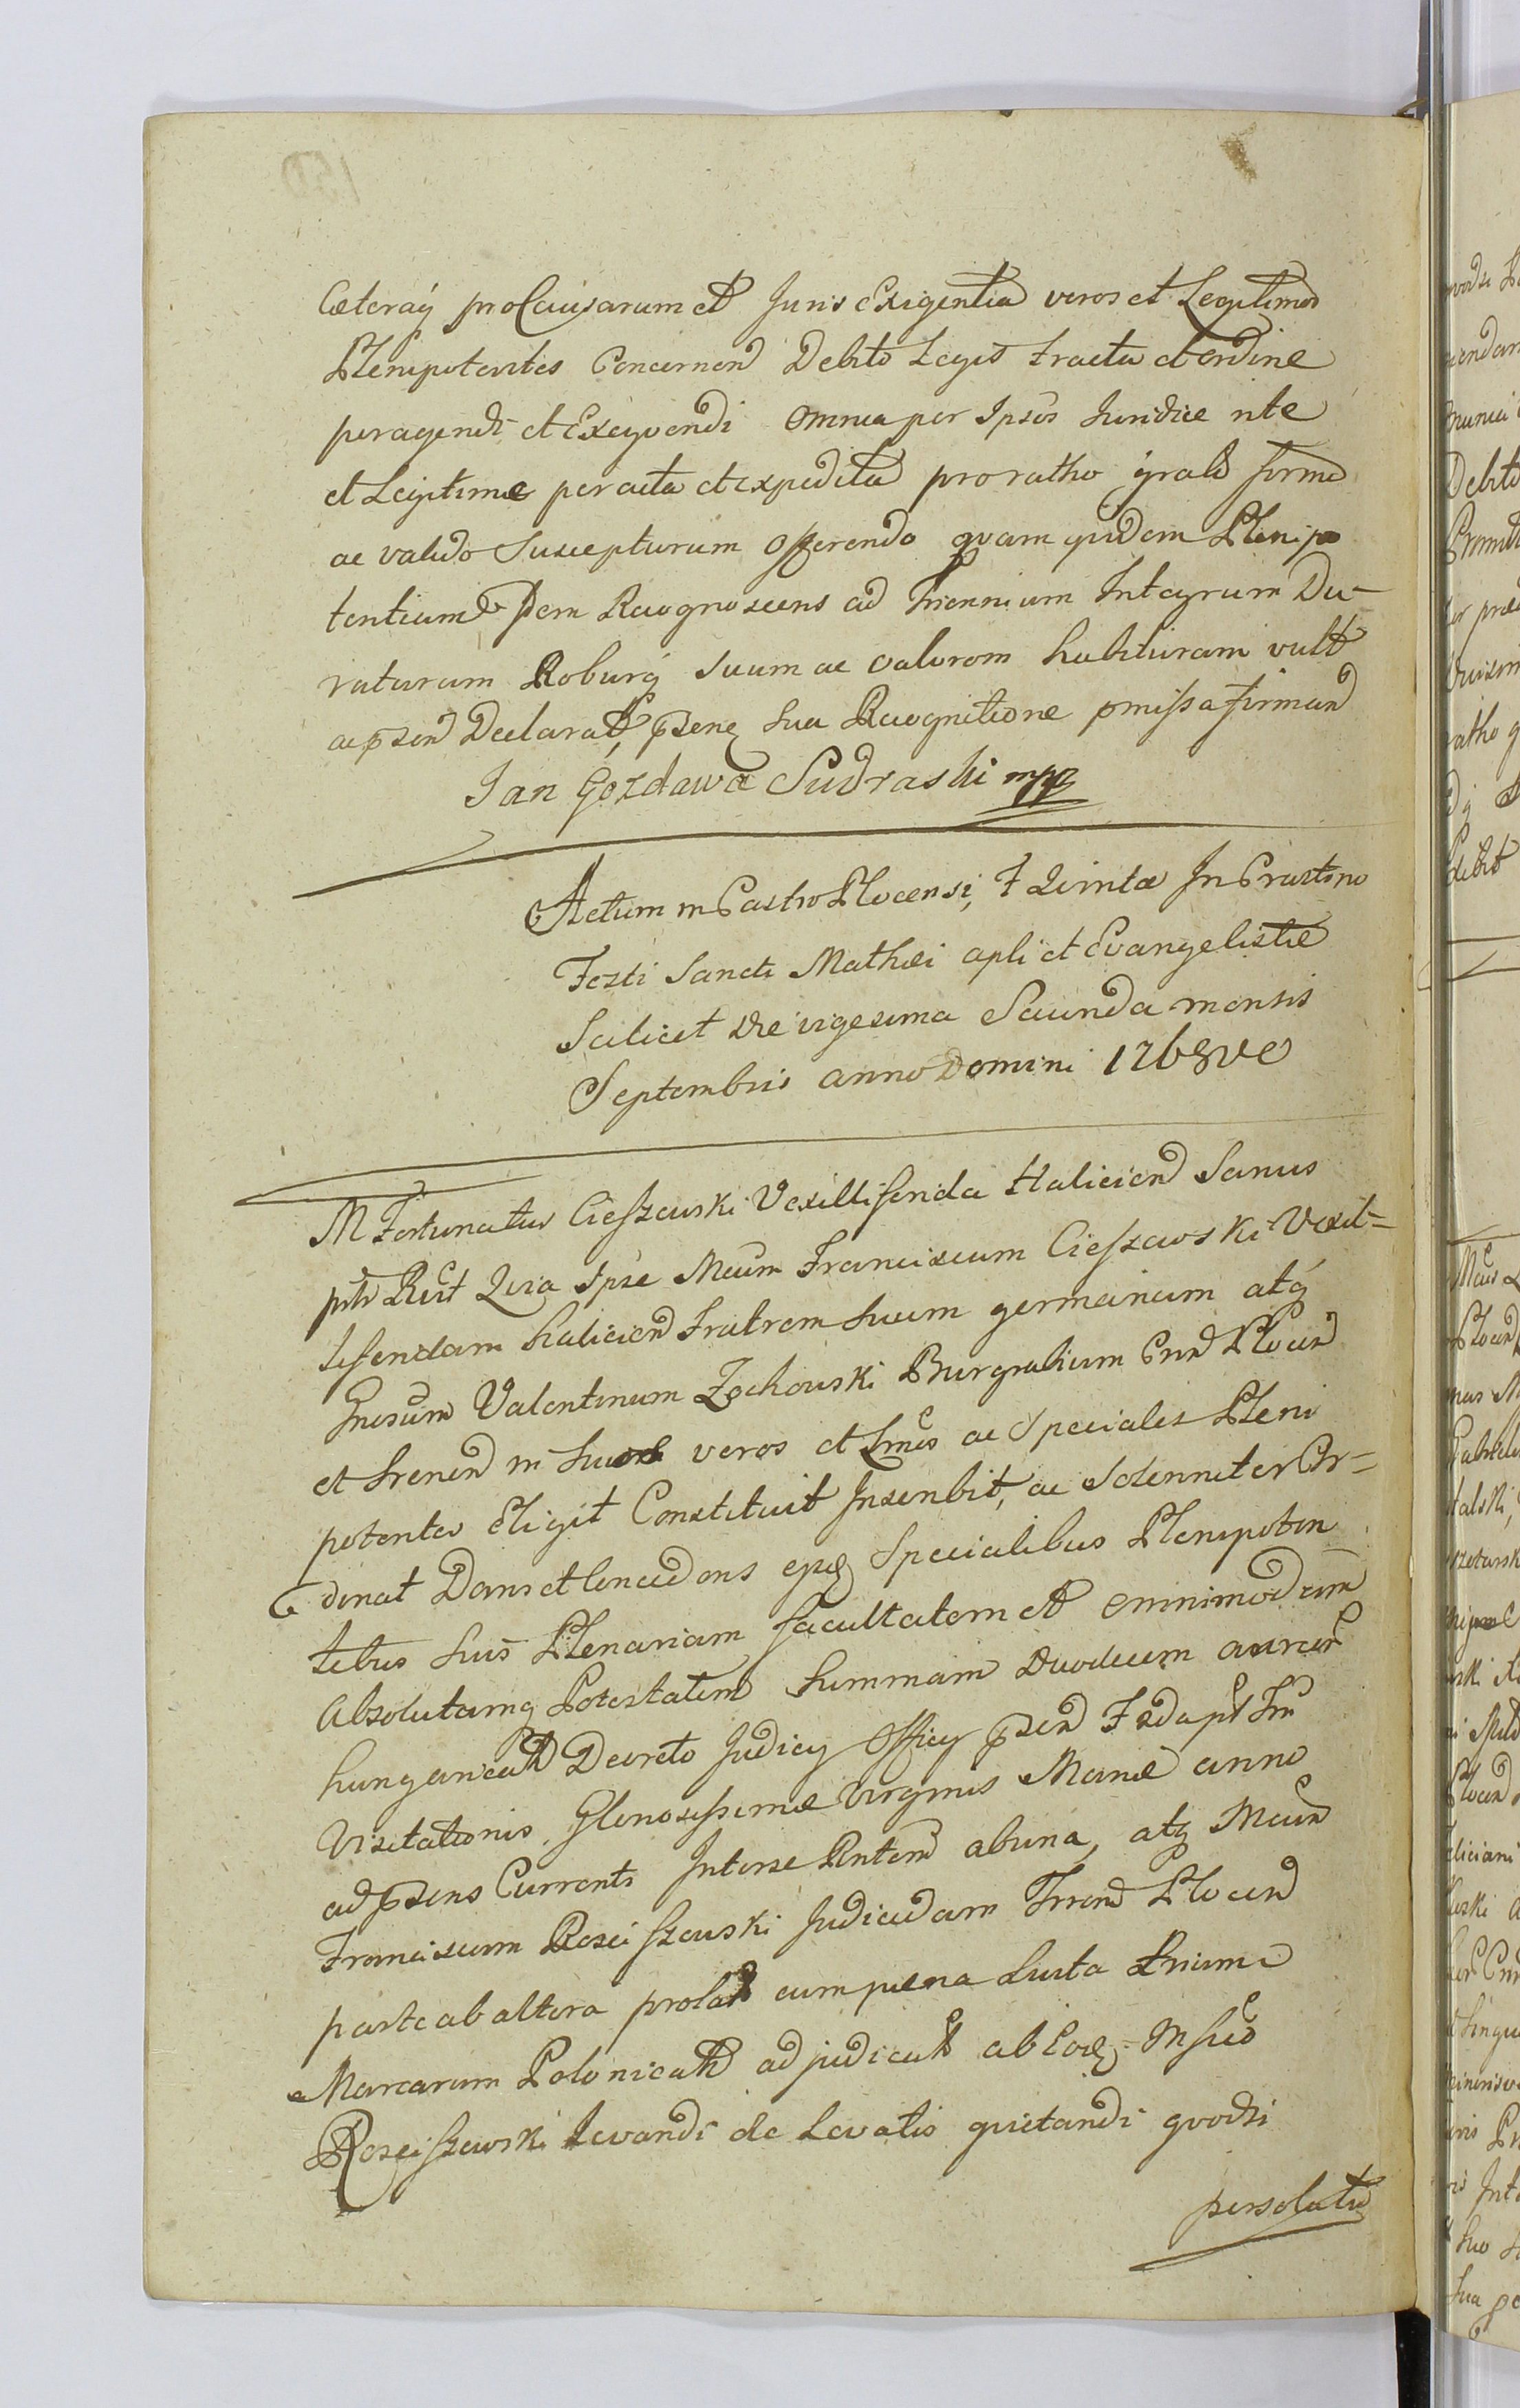 Cæteraq̃ pro Causarum et Juris Exigentia veros et Legitimos
Plenipotentes Concernend Debito Legis tractu et ordine
peragendi et Exeqvendi omnia per Ipsos Juridice rite
et Legitime peracta et expedita pro ratho grato firmo
ac valido Suscepturum offerendo qvam qvidem Plenipo
tentiam Idem Recognoscens ad Triennium Integrum Du-
raturam Roburq̃ Suum ac valorem habituram vult
ac p̄sen Declarat, p̄senq̃ Sua Recognitione p̄missa firmand
Jan Gozdawa Sudraski mpp
Actum in Castro Plocensi, F Qvinta In Crastino
Festi Sancti Mathæi apli et Evangelistæ
Scilicet Die vigesima Secunda mensis
Septembris anno Domini 1768vo
M Fortunatus Cieszewski Vexillifferida Halicien Sanus
ptr Rcvit Qvia Ipse Mcum Franciscum Cieszewski Vexil=
liferidam Halicien Fratrem Suum germanum atq̃
Gnosum Valentinum Zochowski Burgrabium Cnn Plocen
et Srenen in Suos veros et Lmos ac Speciales Pleni
potentes Eligit Constituit Inscribit, ac Solenniter Or=
dinat Dans et Concedens ejsdē Specialibus Plenipoten
tibus Suis Plenariam facultatem et omnimodam
Absolutamq̃ Potestatem Summam Duodecim aureor
hungaricat Decreto Judicij Officij p̄sen F 2da pt Fm
Visitationis Gloriosissimæ Virginis Mariæ anno
ad p̄sens Currenti Inter se Rntem ab una, atq̃ Mcum
Franciscum Rosciszewski Judicidam Trren Plocen
parte ab altera prolat cum pæna Luita trium
Marcarum Polonicat adjudicat ab Eodē Mfico
Rosciszewski Levandi de Levatis qvietandi qvodsi
persolutis